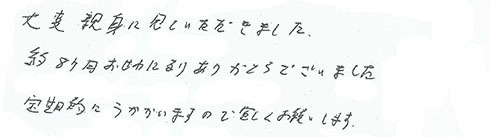 大変親身にしていただきました。
約8ケ月お世話になりありがとうございました
定期的にうかがいますので宜しくお願いします。